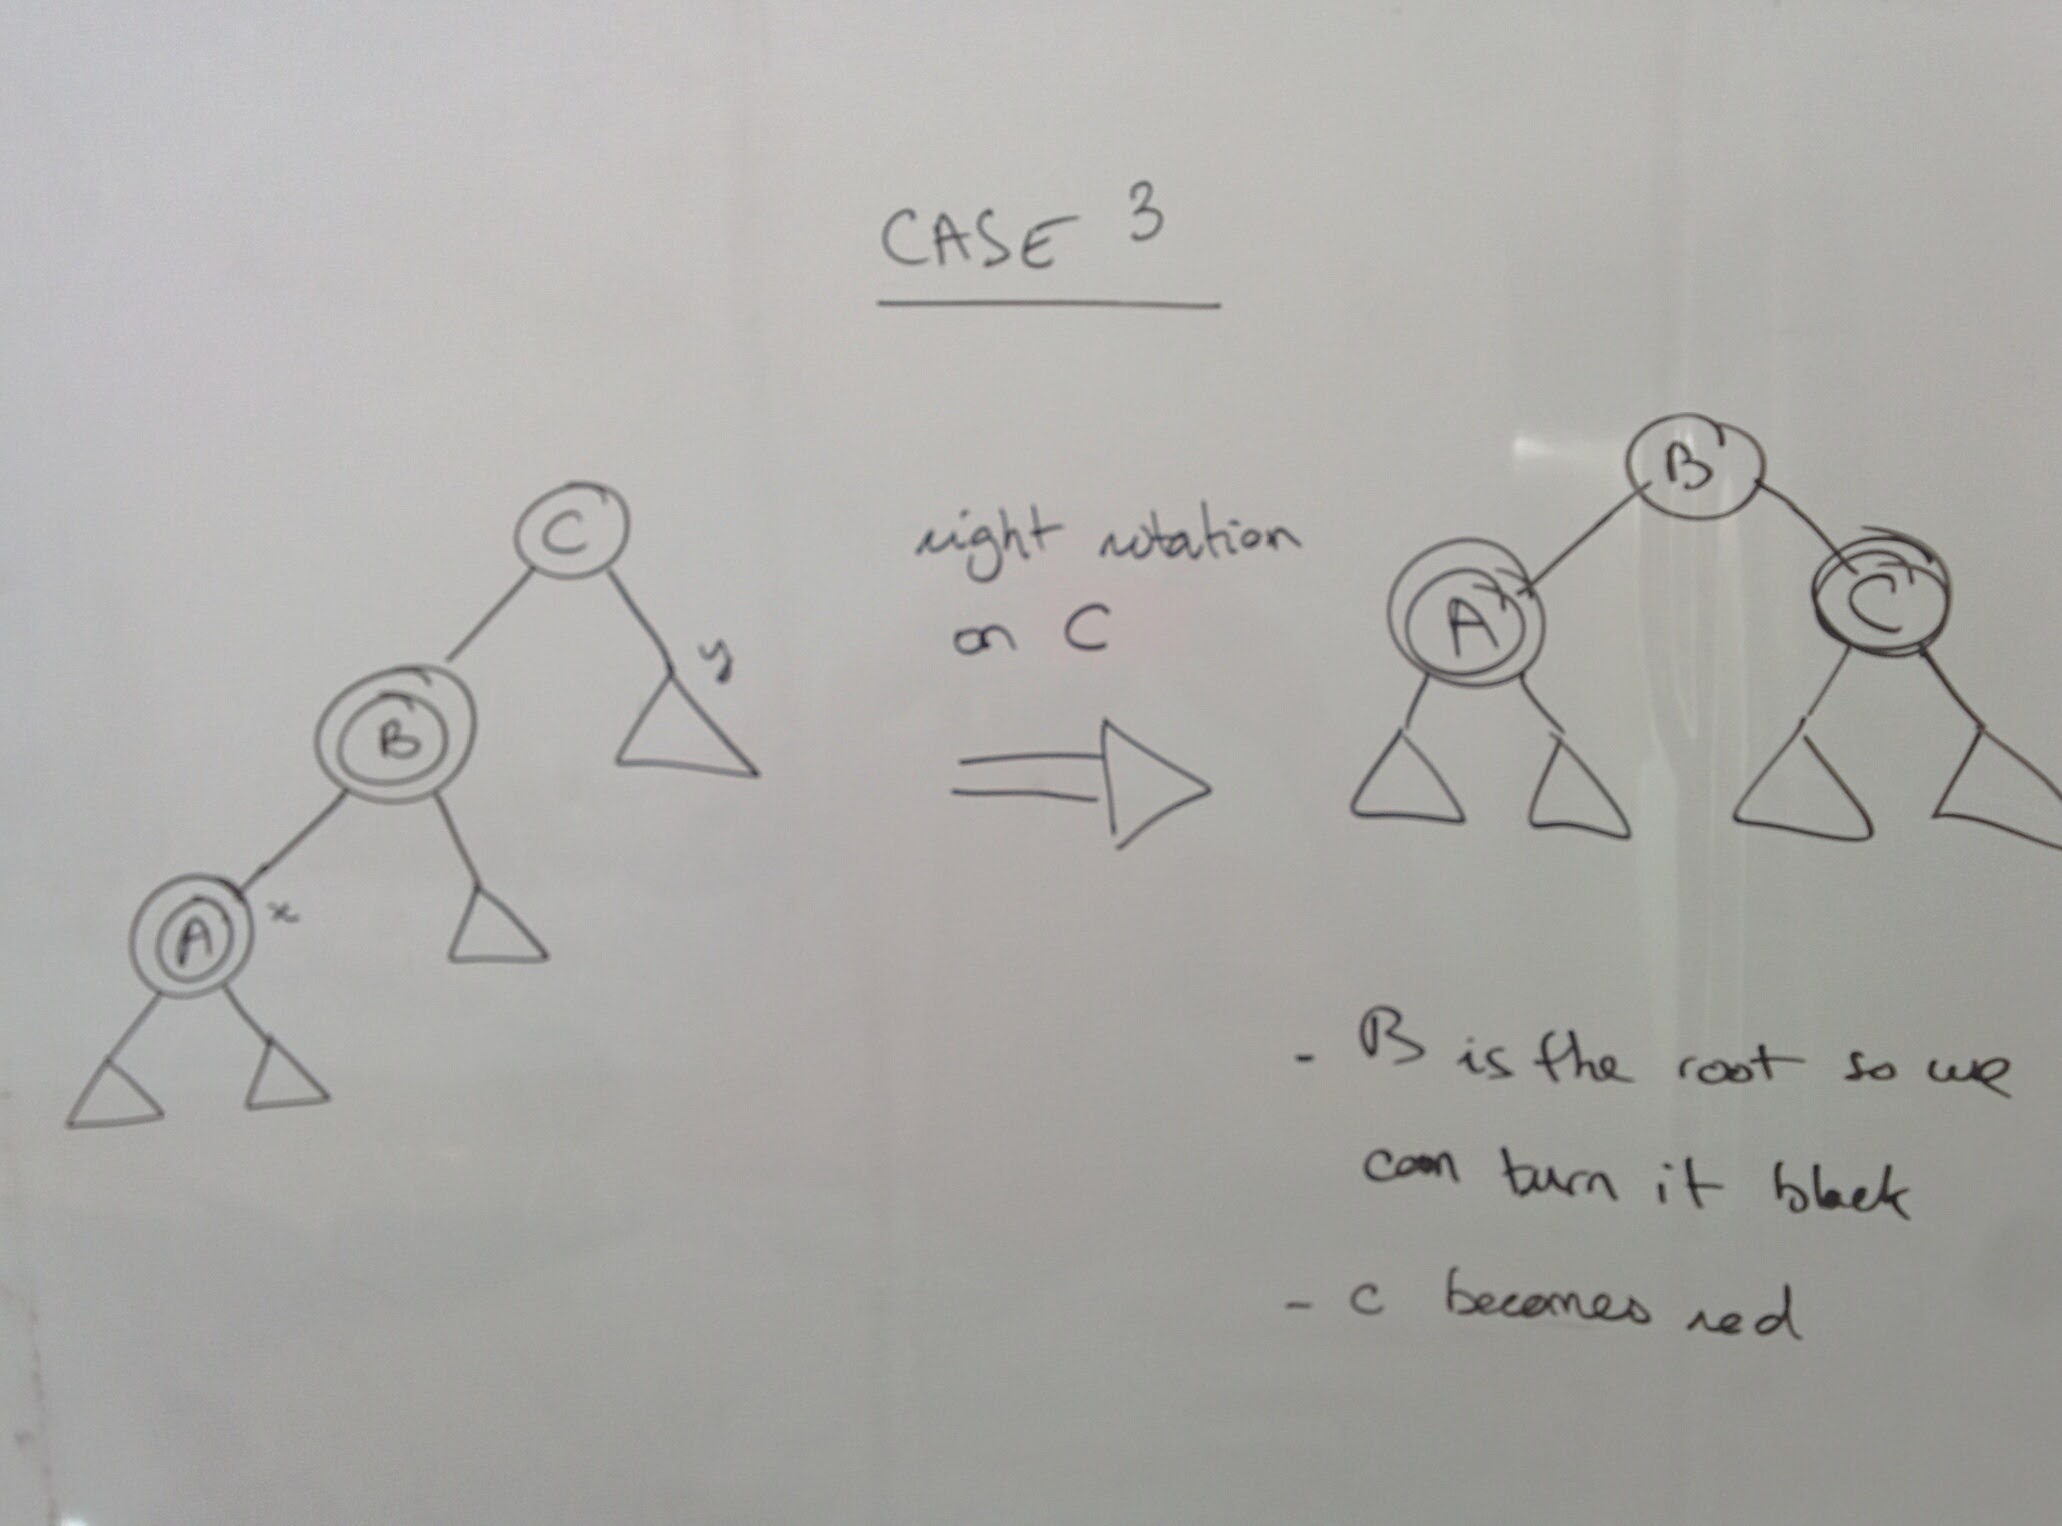 CASE 3
C
y
B
x
A
right rotation
on C
B
A
C
- B is the root so we
can turn it black
- C becomes red